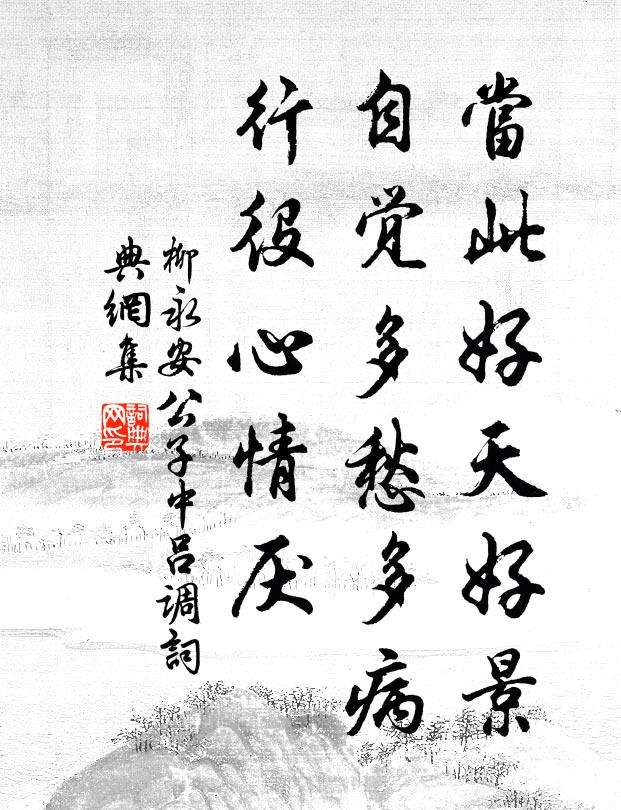 當此好天好景
自觉多愁多病
行役心情厌
柳永安公子中吕调詞
典網集
詞典
网印